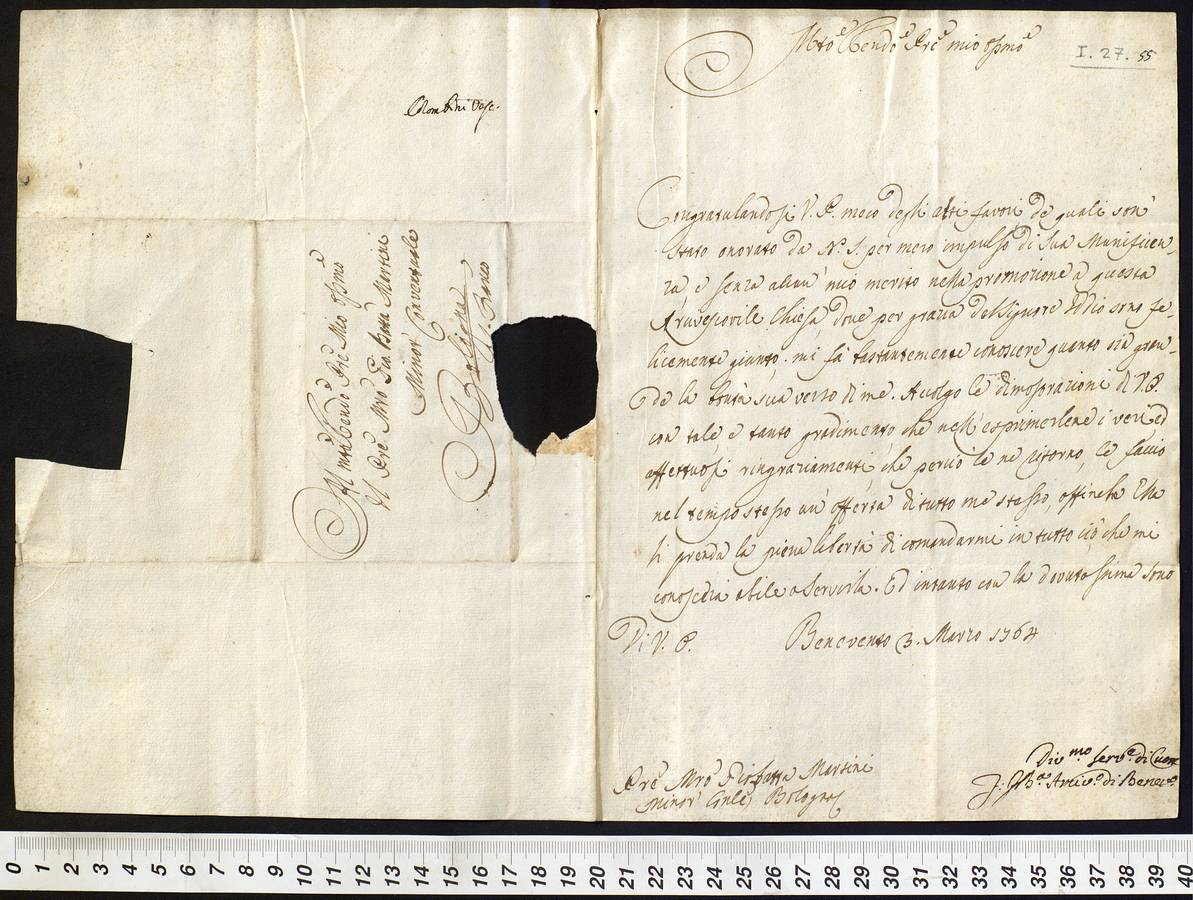 Colombini Vesc.
Al Molto Rendo Pre Mio Ossmo
Il Pre Mro Gio Batta Martini
Minor Conventuale
Bologna
Mto Rendo Pre mio Ossmo
I. 27. 55
Congratulandosi V. P. meco degli alti favori de quali son
stato onorato da N. S. per mero impulso di Sua Munificen
za e senza alcun mio merito nella promozione a questa
Arcivescovile Chiesa dove per grazia del Signore Iddio sono fe,
licemente giunto. mi fà bastantemente conoscere quanto sia gran,
de la bontà sua verso di me. Accolgo le dimostrazioni di V. P.
con tale e tanto gradimento che nell'esprimerlene i veri ed
affettuosi ringraziamenti, che perciò le ne ritorno, le faccio
nel tempo stesso un' offerta di tutto me stesso, affinche Ella
si prenda la piena libertà di comandarmi in tutto ciò che mi
conoscerà abile a servirla. Ed intanto con la dovuta stima sono
Di V. P.
Benevento 3. Marzo 1764
Divmo servre di Cuore
J: GBa Arcivo di Benevo
Pre Mro Giobatta Martini
Minor Conle Bologna
0 1 2 3 4 5 6 7 8 9 10 11 12 13 14 15 16 17 18 19 20 21 22 23 24 25 26 27 28 29 30 31 32 33 34 35 36 37 38 39 40